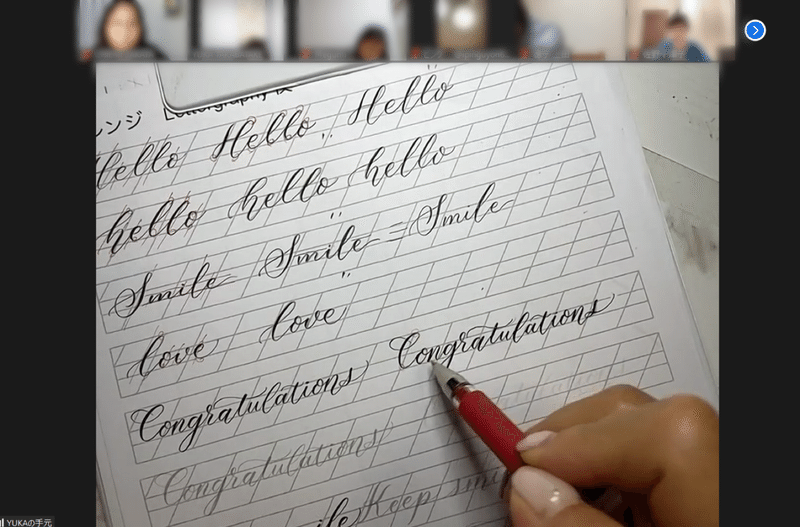 レンジ
Hello Hello Hello
hello hello hello
Smile Smile Smile
love love
Congratulations Congratulations
Congratulations
Keep
YUKAの手元